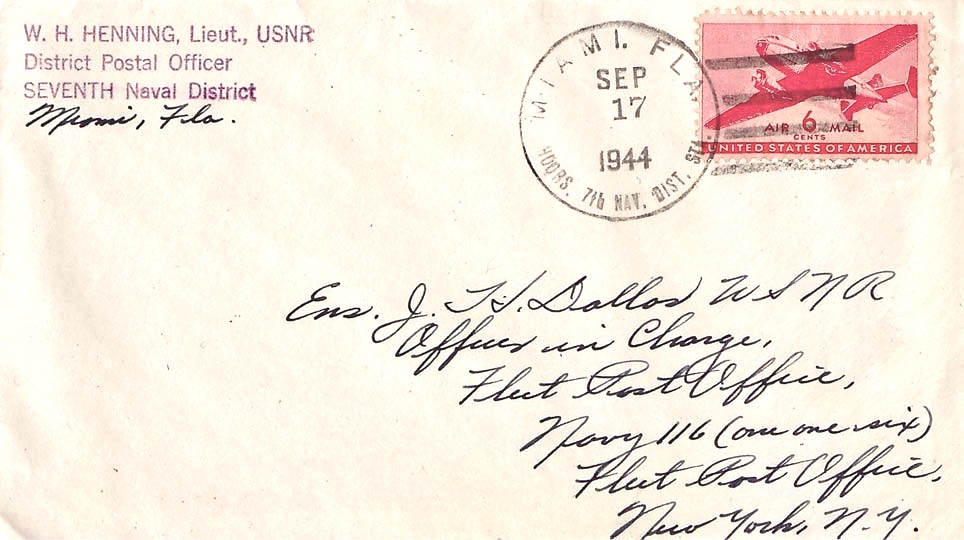 W. H. HENNING, Lieut., USNR
District Postal Officer
SEVENTH Naval District
Miami, Fla.
MIAMI. FLA.
SEP
17
1944
HDQRS. 7th NAV. DIST.
AIR 6 MAIL
CENTS
UNITED STATES OF AMERICA
Ens. J. H. Dallas USNR
Officer in Charge,
Fleet Post Office,
Navy 116 (one one six)
Fleet Post Office,
New York, N.Y.